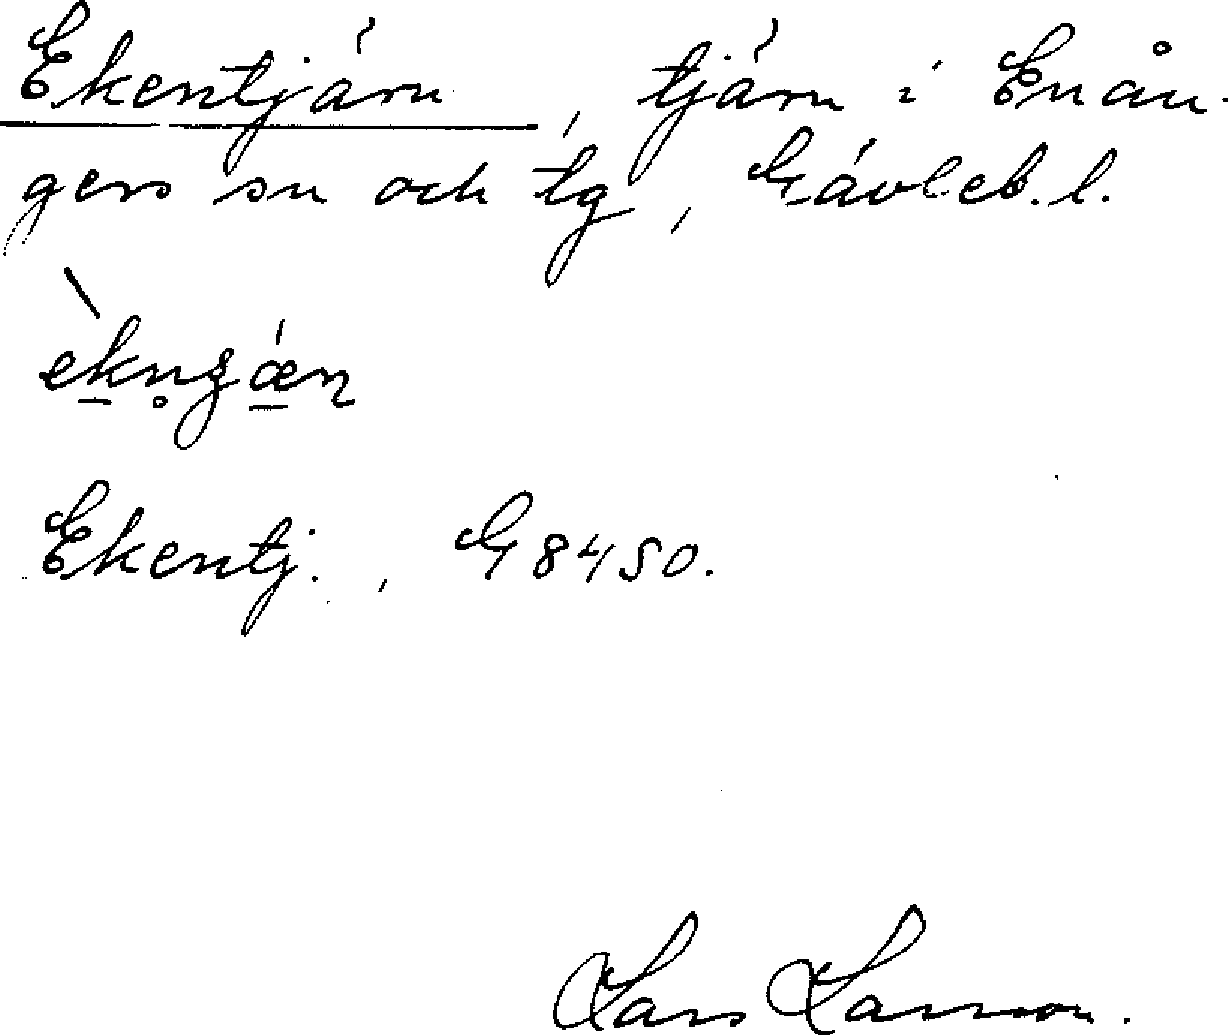 Ekentjärn, tjärn i Enån-
gers sn och tg, Gävleb. l.
Ekentj., G8450.
Lars Larsson.